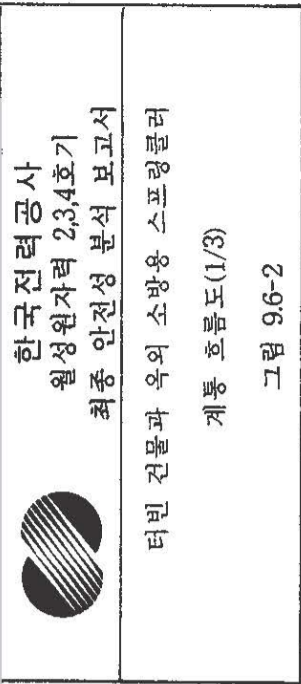 한국전력공사
월성원자력 2,3,4호기
최종 안전성 분석 보고서
터빈 건물과 옥외 소방용 스프링클러
계통 흐름도(1/3)
그림 9.6-2